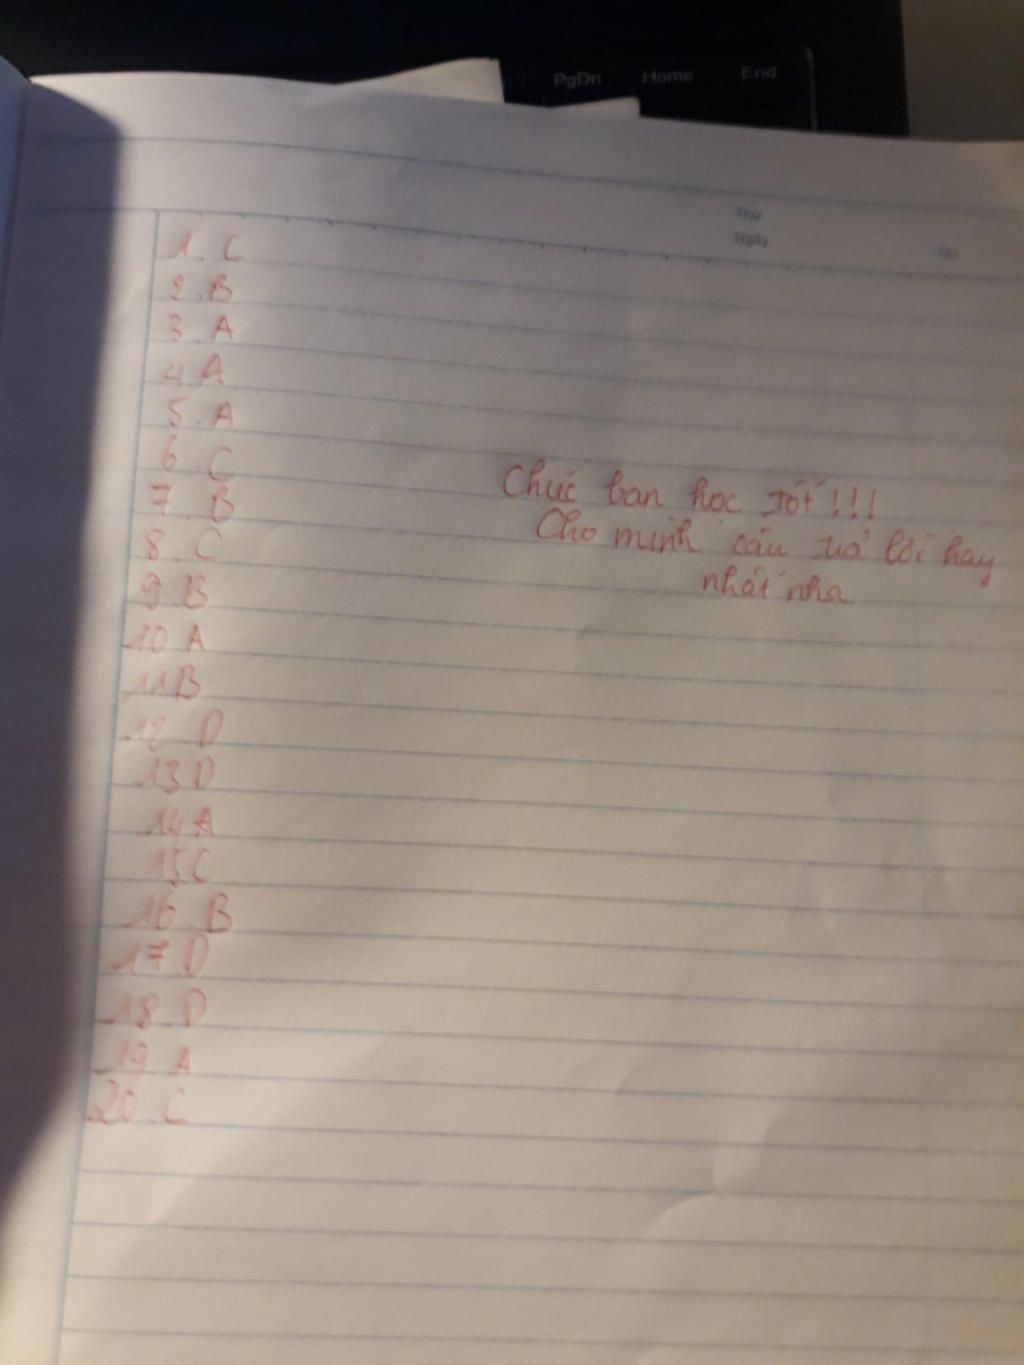 PgDn Home End
Thứ
Ngày
No
1. C
2. B
3. A
4 A
5. A
6 C
7 B
8 C
9 B
10 A
11 B
12 D
13 D
14 A
15 C
16. B
17 D
18 D
19 A
20. C
Chúc bạn học tốt!!!
Cho mình câu trả lời hay
nhất nha